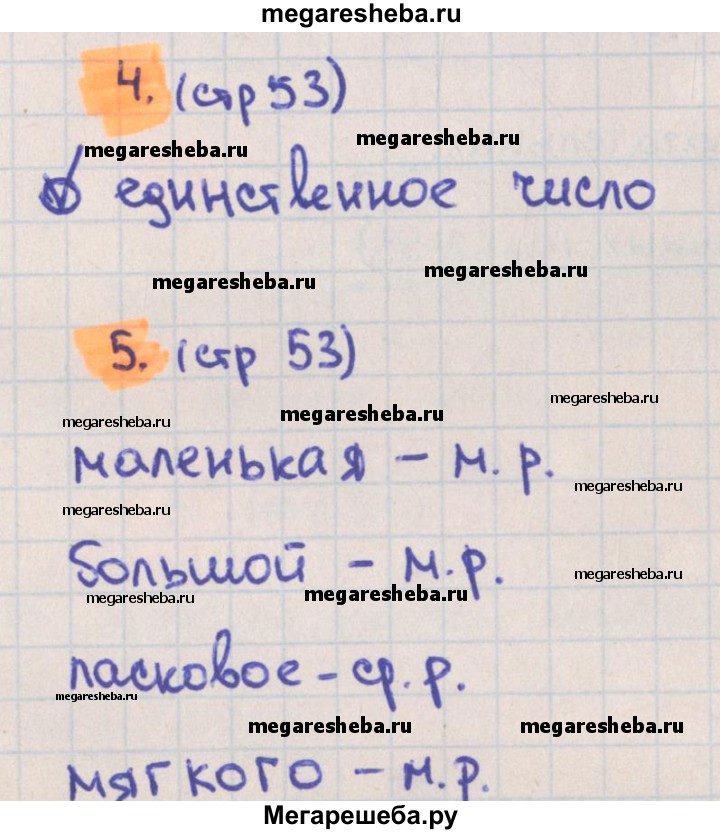 megaresheba.ru
4. (стр 53)
megaresheba.ru
megaresheba.ru
единственное число
megaresheba.ru
megaresheba.ru
5. (стр 53)
megaresheba.ru
megaresheba.ru
megaresheba.ru
маленькая - м. р.
megaresheba.ru
megaresheba.ru
большой - м.р.
megaresheba.ru
megaresheba.ru
megaresheba.ru
ласковое - ср. р.
megaresheba.ru
megaresheba.ru
megaresheba.ru
мягкого - м.р.
Мегарешеба.ру